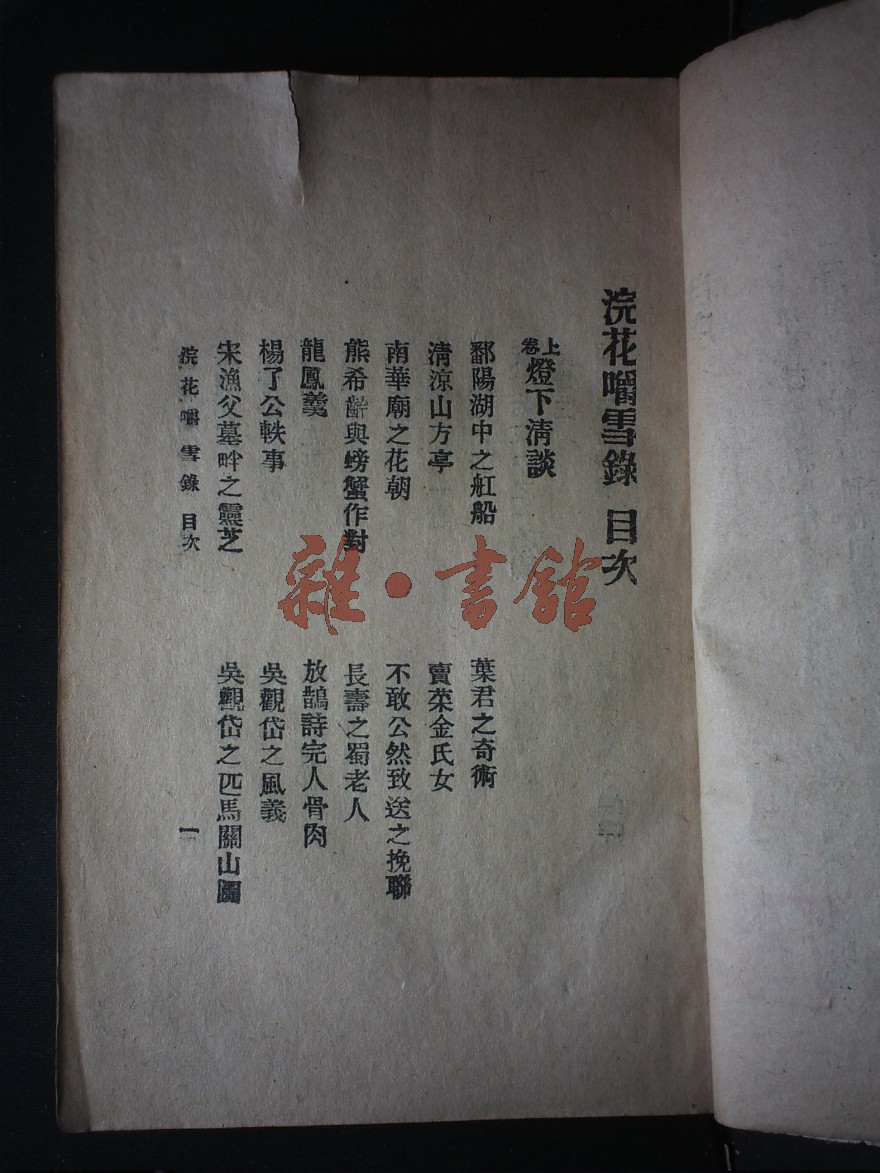 浣花嚼雪錄 目次
上卷 燈下清談
鄱陽湖中之舡船
葉君之奇術
清涼山方亭
賣菜金氏女
南華廟之花朝
不敢公然致送之挽聯
熊希齡與螃蟹作對
長壽之蜀老人
龍鳳羹
放鵲詩完人骨肉
楊了公軼事
吳觀岱之風義
宋漁父墓畔之靈芝
吳觀岱之匹馬關山圖
浣花嚼雪錄 目次
一
雜·書館